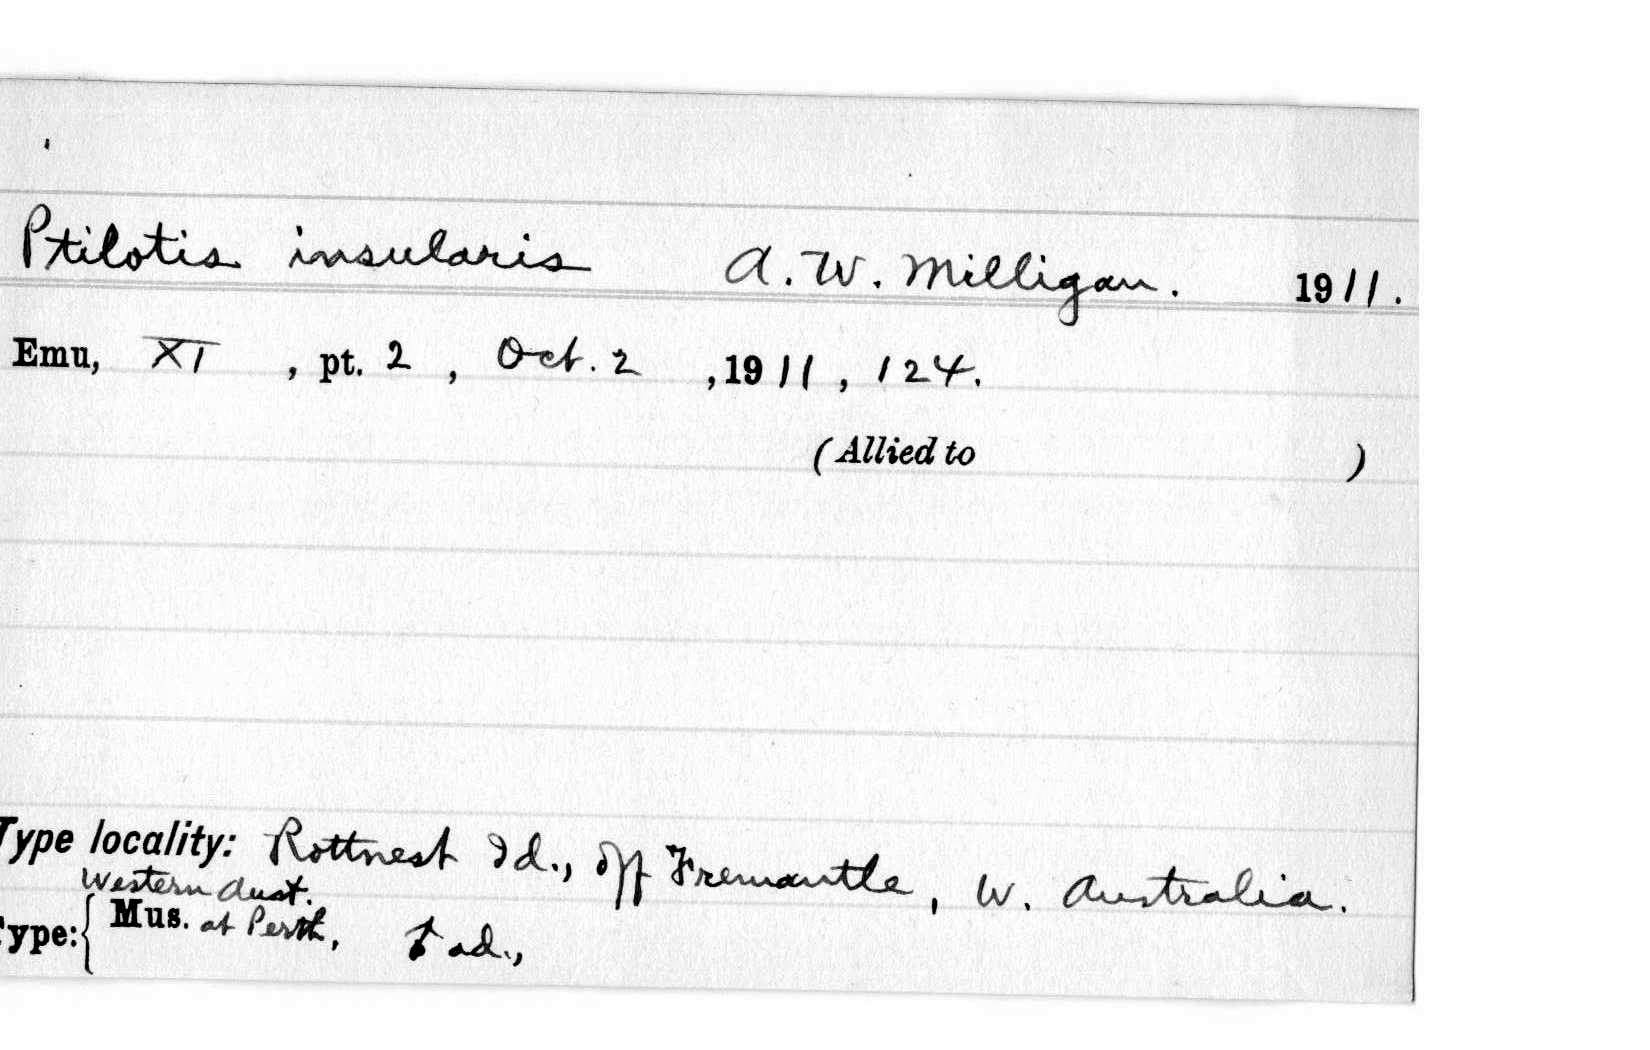 Ptilotis insularis A. W. Milligan. 1911.
Emu, XI, pt. 2, Oct. 2, 1911, 124.
(Allied to )
Type locality: Rottnest Id., off Fremantle, W. Australia.
Western Aust.
Type: { Mus. at Perth, ad.,